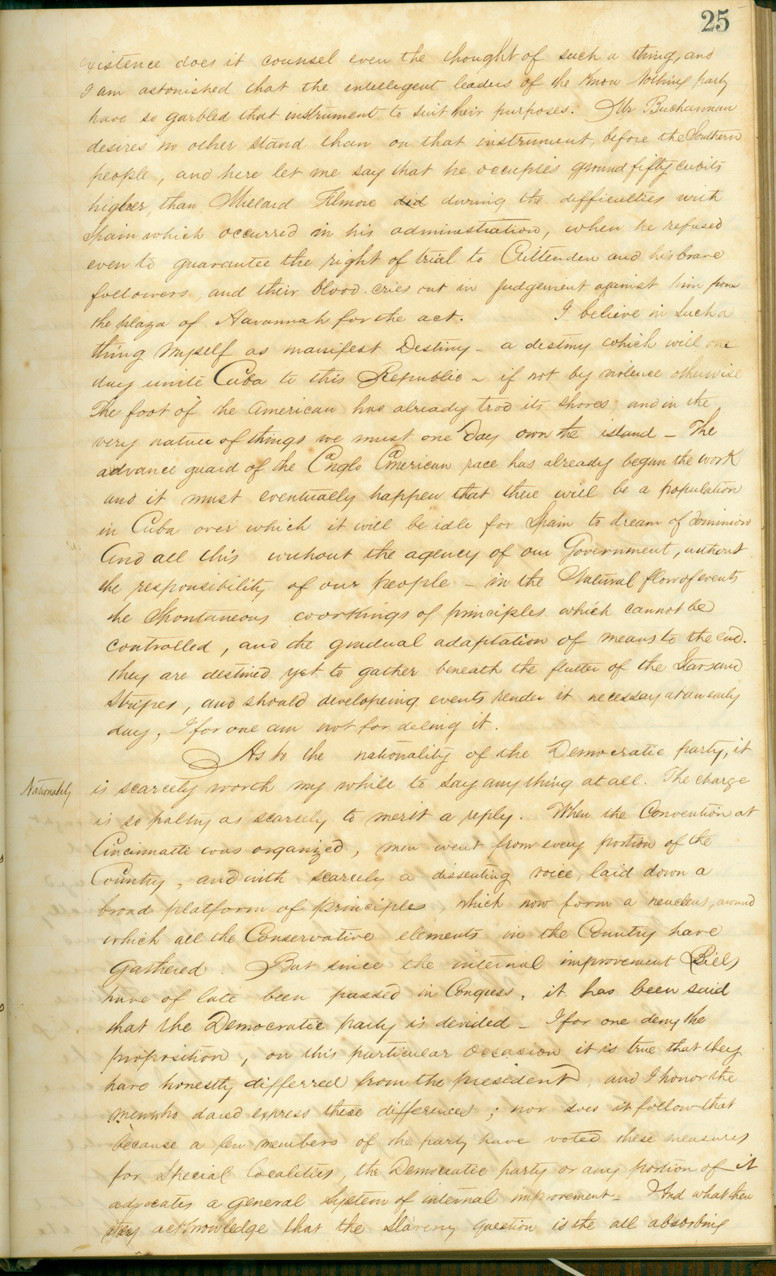 25
existence does it counsel even the thought of such a thing, and
I am astonished that the intellegent leaders of the Know Nothing party
have so garbled that instrument to suit their purposes. Mr Buchannan
desires no other stand than on that instrument, before the Southern
people, and here let me say that he occupies ground fifty cubits
higher, than Millard Filmore did during the difficulties with
Spain which occurred in his administration, when he refused
even to guarantee the right of trial to Crittenden and his brave
followers, and their blood cries out in judgement against him from
the plaza of Havannah for the act. I believe in such a
thing myself as manifest Destiny - a destiny which will one
day unite Cuba to this Republic - if not by violence otherwise
The foot of the American has already trod its shores; and in the
very nature of things we must one day own the island - The
advance guard of the Anglo American race has already began the work
and it must eventually happen that there will be a population
in Cuba over which it will be idle for Spain to dream of dominion
And all this without the agency of our Government, without
the responsibility of our people - in the Natural flow of events
the Spontaneous workings of principles which cannot be
controlled, and the gradual adaptation of means to the end.
they are destined yet to gather beneath the flutter of the Stars and
Stripes, and should developeing events render it necessary at an early
day, I for one am not for delaying it.
As to the nationality of the Democratic party, it
Nationality
is scarcely worth my while to say any thing at all. The charge
is so paltry as scarcely to merit a reply. When the Convention at
Cincinnatti was organized, men went from every portion of the
Country, and with scarcely a dissenting voice, laid down a
broad platform of principles, which now form a neucleus, around
which all the Conservative elements in the Country have
gathered. But since the internal improvement Bills
have of late been passed in Congress, it has been said
that the Democratic party is devided - I for one deny the
proposition, on this particular occasion it is true that they
have honestly differred from the president, and I honor the
men who dared express these differences; nor does it follow that
because a few members of the party have voted these measures
for special localities, the Democratic party or any portion of it
advocates a general System of internal improvement - And what then
they acknowledge that the Slavery question is the all absorbing